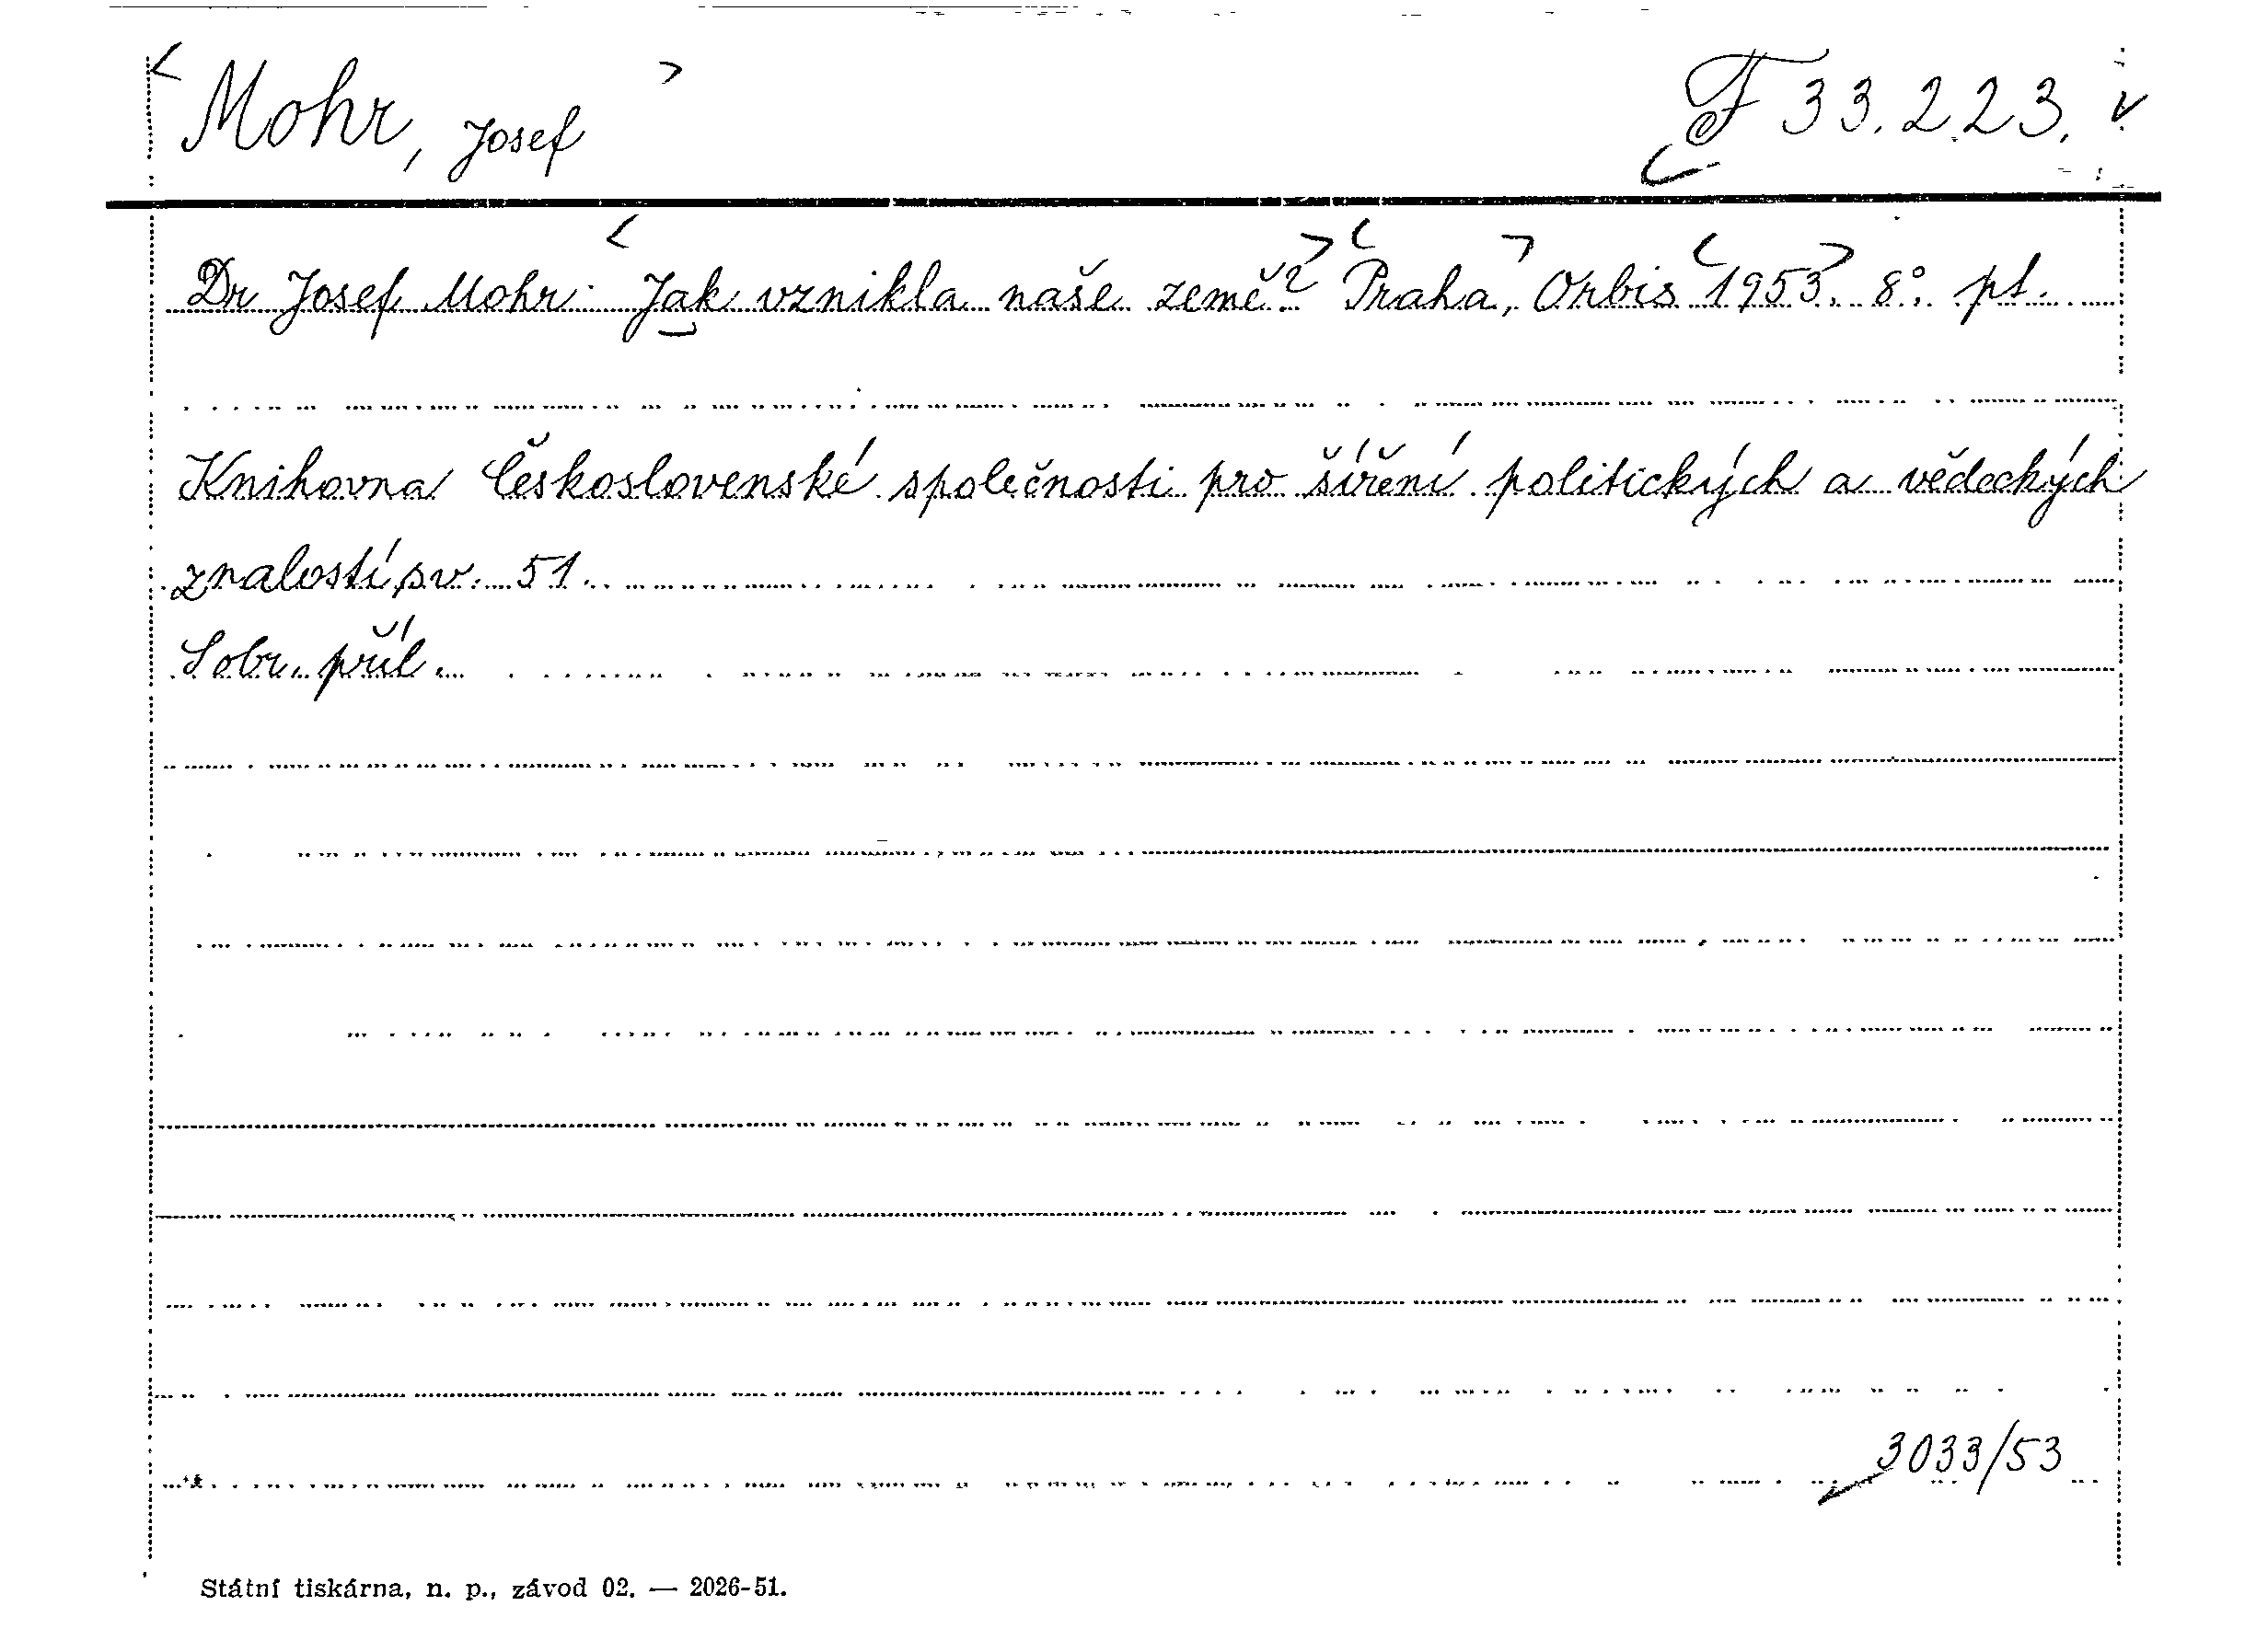 Mohr, Josef
F 33.223.
Dr Josef Mohr: Jak vznikla naše země? Praha, Orbis 1953. 8°. pt.
Knihovna Československé společnosti pro šíření politických a vědeckých
znalostí, sv. 51.
S obr. příl.
3033/53
Státní tiskárna, n. p., závod 02. — 2026-51.